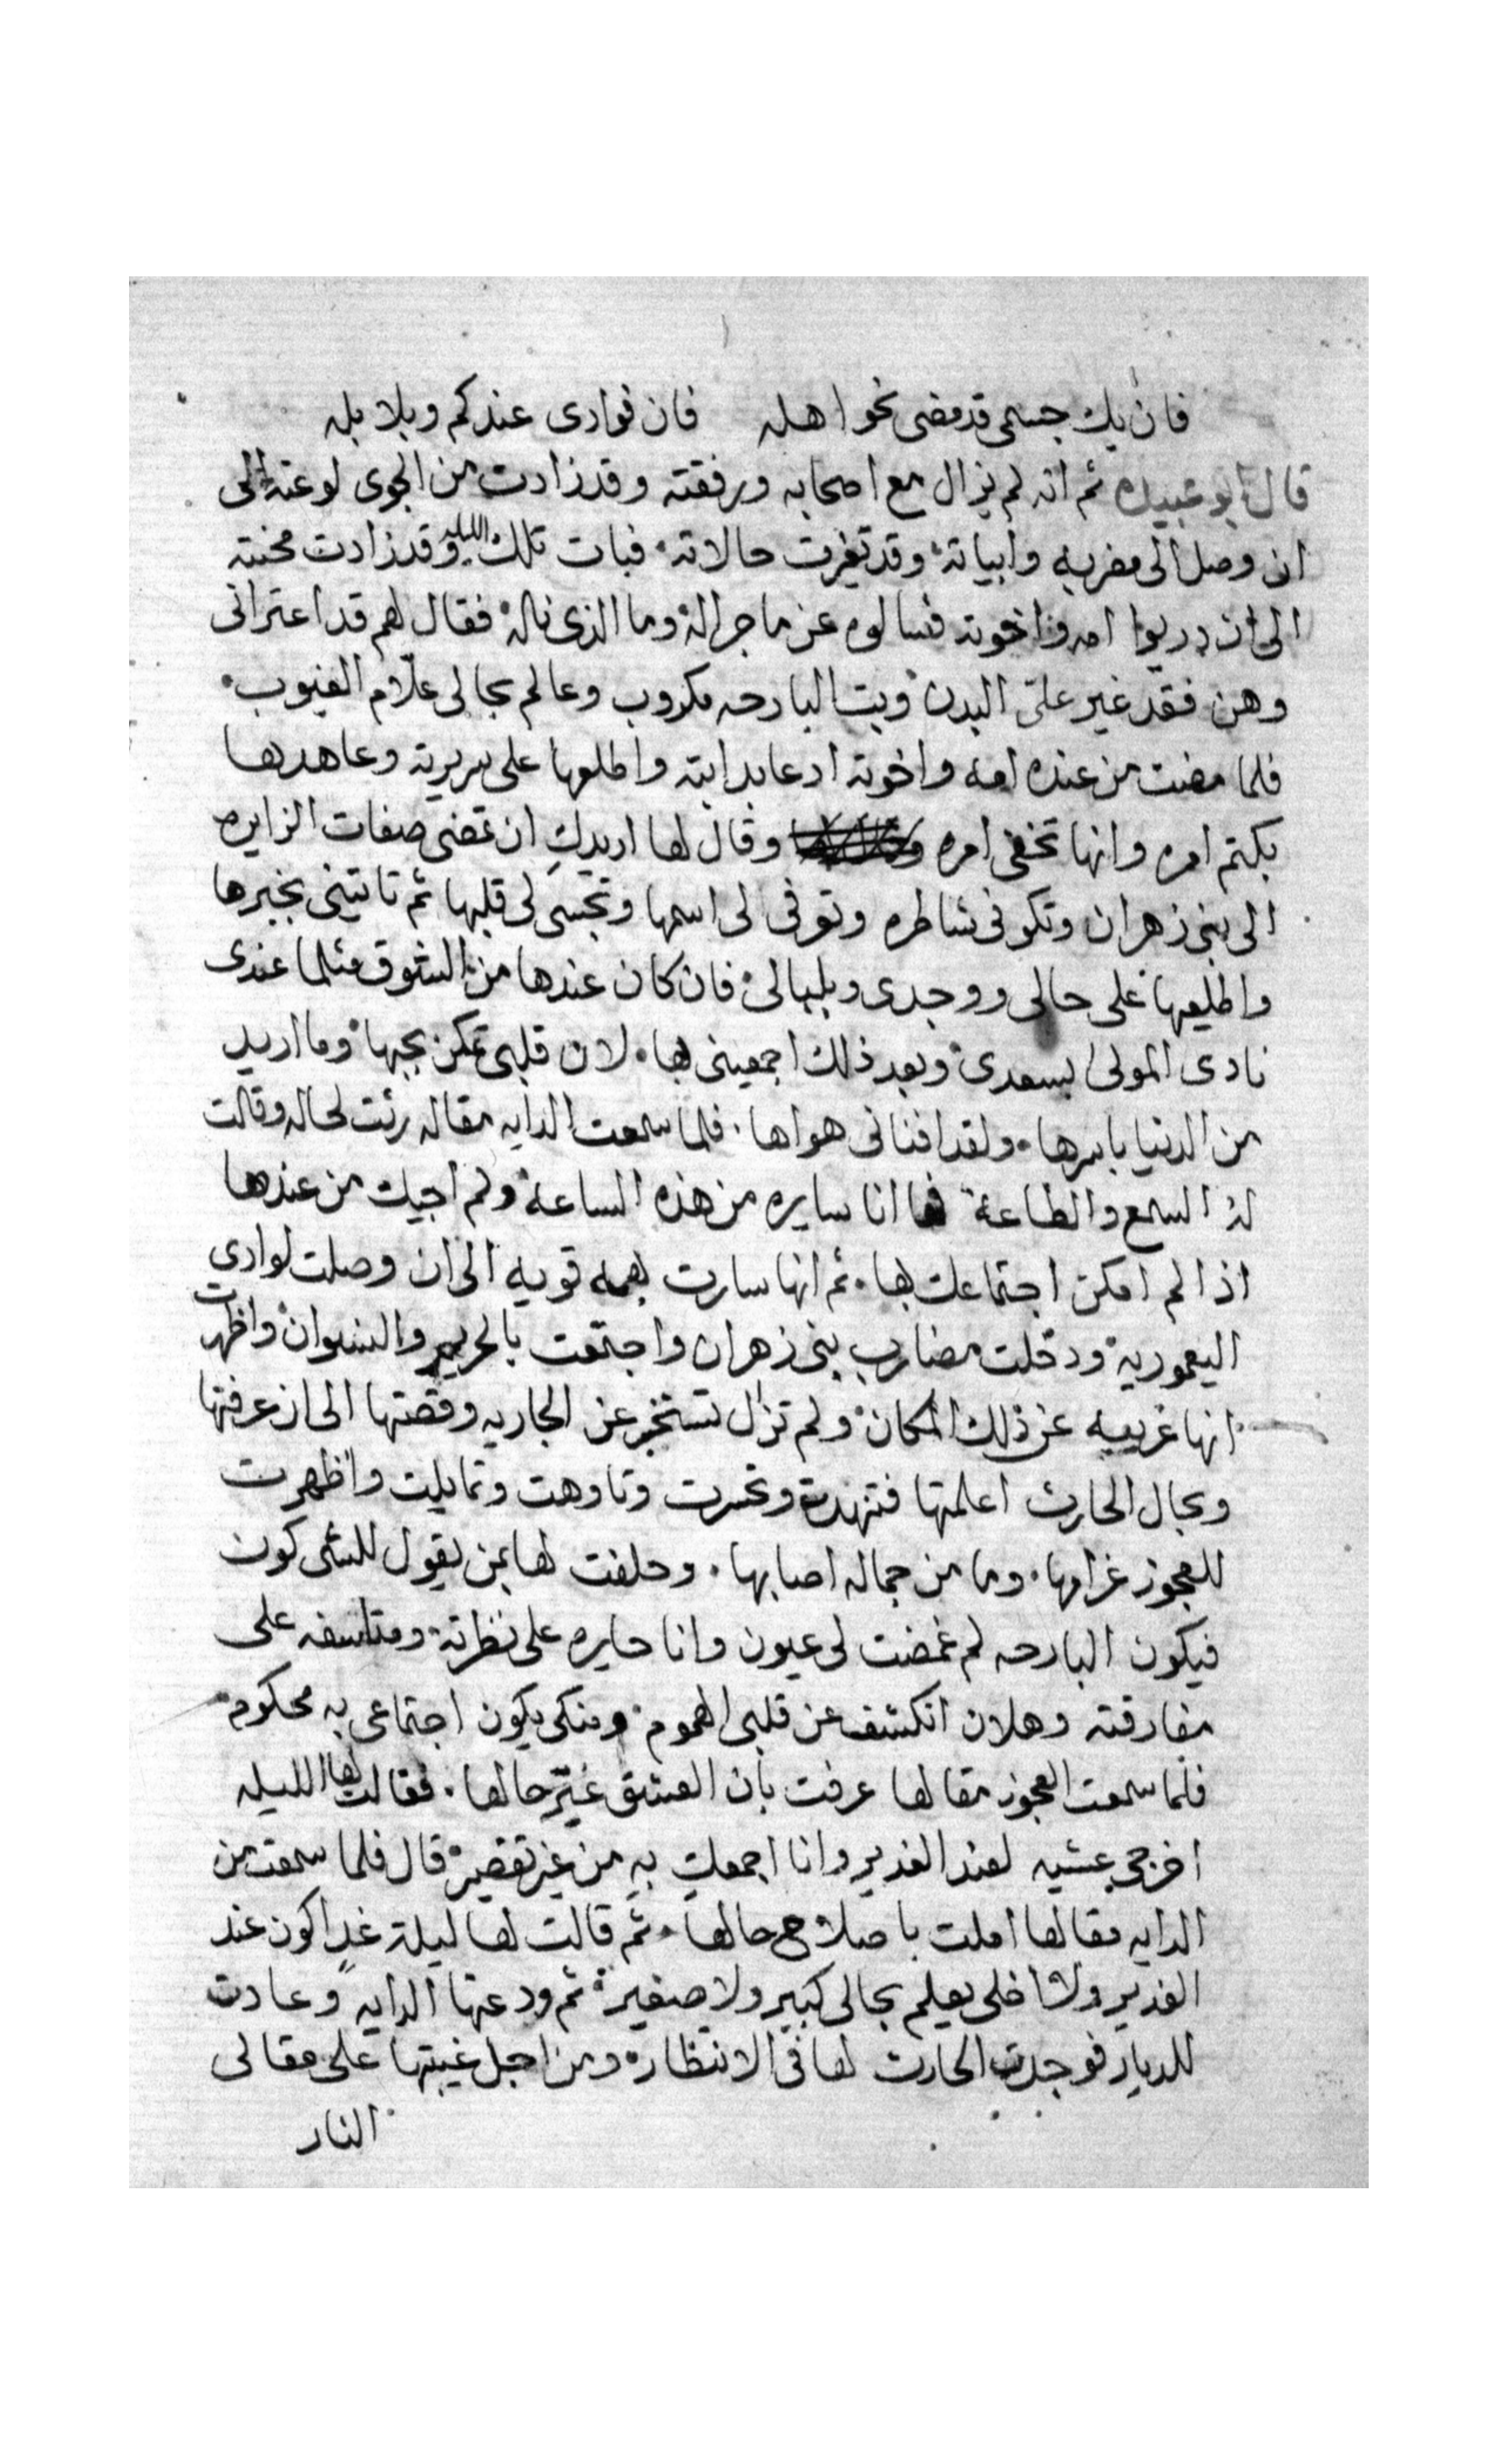 فان يك جسمى قد مضى نحو اهله فان فوادى عندكم وبلابله
قال ابو عبيده ثم انه لم يزال مع اصحابه ورفقته وقد زادت من الجوى لوعته الى
ان وصل الى مضربه وابياته وقد تغيرت حالاته فبات تلك الليله وقد زادت محنته
الى ان دريوا امه واخوته فسالوه عن ما جرا له وما الذى ناله فقال لهم قد اعترانى
وهن فقد غير على البدن وبت البارحه مكروب وعالم بحالى علّام الغيوب
فلما مضت من عنده امه واخوته ادعا بدايته واطلعها على سريرته وعاهدها
بكتم امره وانها تخفى امره وقال لها اريدكِ ان تمضى صفات الزايره
الى بنى زهران وتكونى شاطره وتوفى لى اسمها وتجسى لى قلبها ثم تاتينى بخبرها
واطليعها على حالى ووجدى وبلبالى فان كان عندها من الشوق مثلما عندى
نادى المولى بسعدى وبعد ذلك اجمعينى بها لان قلبى تمكن بحبها وما اريد
من الدنيا باسرها ولقد افنانى هواها فلما سمعت الدايه مقاله رئت لحاله وقالت
له السمع والطاعة فها انا سايره من هذه الساعة ولم اجيك من عندها
اذا لم امكن اجتماعك بها ثم انها سارت بهمه قويه الى ان وصلت لوادى
اليعموريه ودخلت مضارب بنى زهران واجتمعت بالحريم والنسوان واظهرت
انها غريبه عن ذلك المكان ولم تزال تستخبر عن الجاريه وقصتها الى ان عرفتها
وبحال الحارث اعلمتها فتنهدت وتحسرت وتاوهت وتمايلت واظهرت
للعجوز غرامها وما من جماله اصابها وحلفت لها بمن يقول للشى كون
فيكون البارحه لم غمضت لى عيون وانا حايره على نظرته ومتاسفه على
مفارقته وهلان انكشف عن قلبى الهموم ومنكى يكون اجتماعى به محكوم
فلما سمعت العجوز مقالها عرفت بان العشق غيّر حالها فقالت لها الليله
اخرجى عشيه لعند الغدير وانا اجمعك به من غير تقصير قال فلما سمعت من
الدايه مقالها املت باصلاح حالها ثم قالت لها ليلة غدٍ اكون عند
الغدير ولا اخلى يعلم بحالى كبير ولا صغير ثم ودعتها الدايه وعادت
للديار فوجدت الحارث لها فى الانتظار ومن اجل غيبتها على مقالى
النار